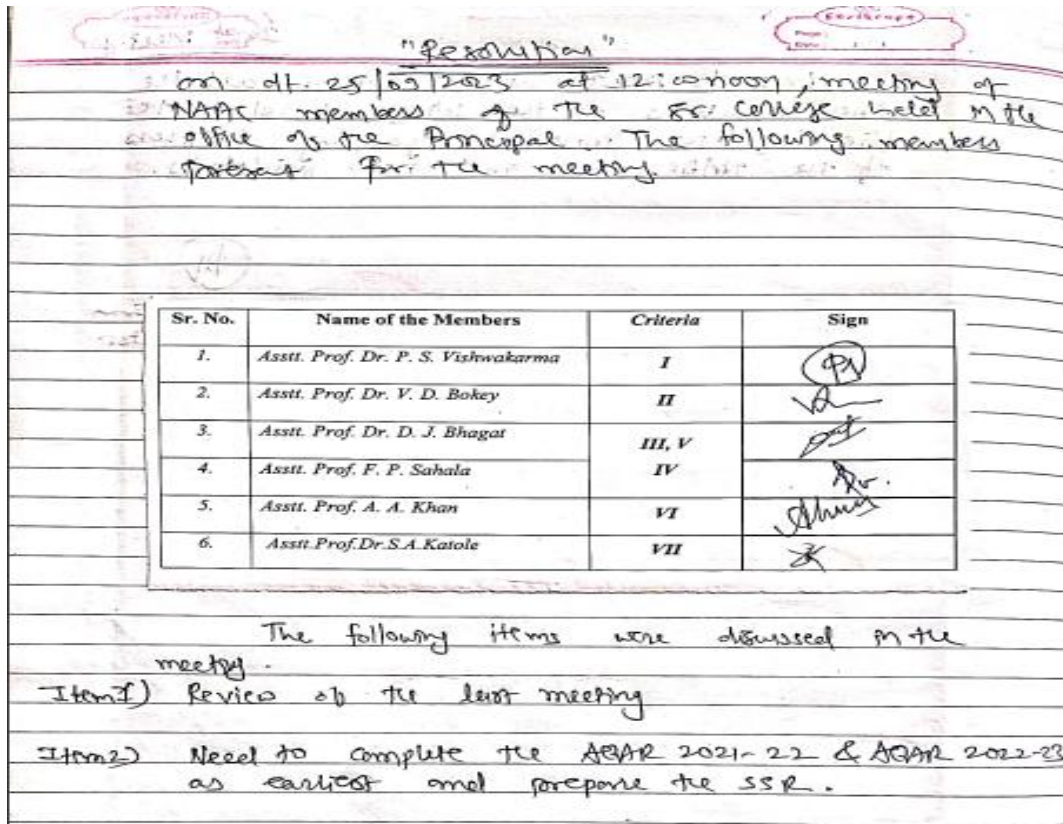 "Resolution"
on dt. 25/09/2023 at 12:00 noon, meeting of
NAAC members of the Sr. College held in the
office of the Principal. The following members
present for the meeting.
Sr. No. Name of the Members Criteria Sign
1. Asstt. Prof. Dr. P. S. Vishwakarma I
2. Asstt. Prof. Dr. V. D. Bokey II
3. Asstt. Prof. Dr. D. J. Bhagat III, V
4. Asstt. Prof. F. P. Sahala IV
5. Asstt. Prof. A. A. Khan VI
6. Asstt.Prof.Dr.S.A.Katole VII
The following items were discussed in the
meeting.
Item1) Review of the last meeting
Item2) Need to complete the AQAR 2021-22 & AQAR 2022-23
as earliest and prepare the SSR.